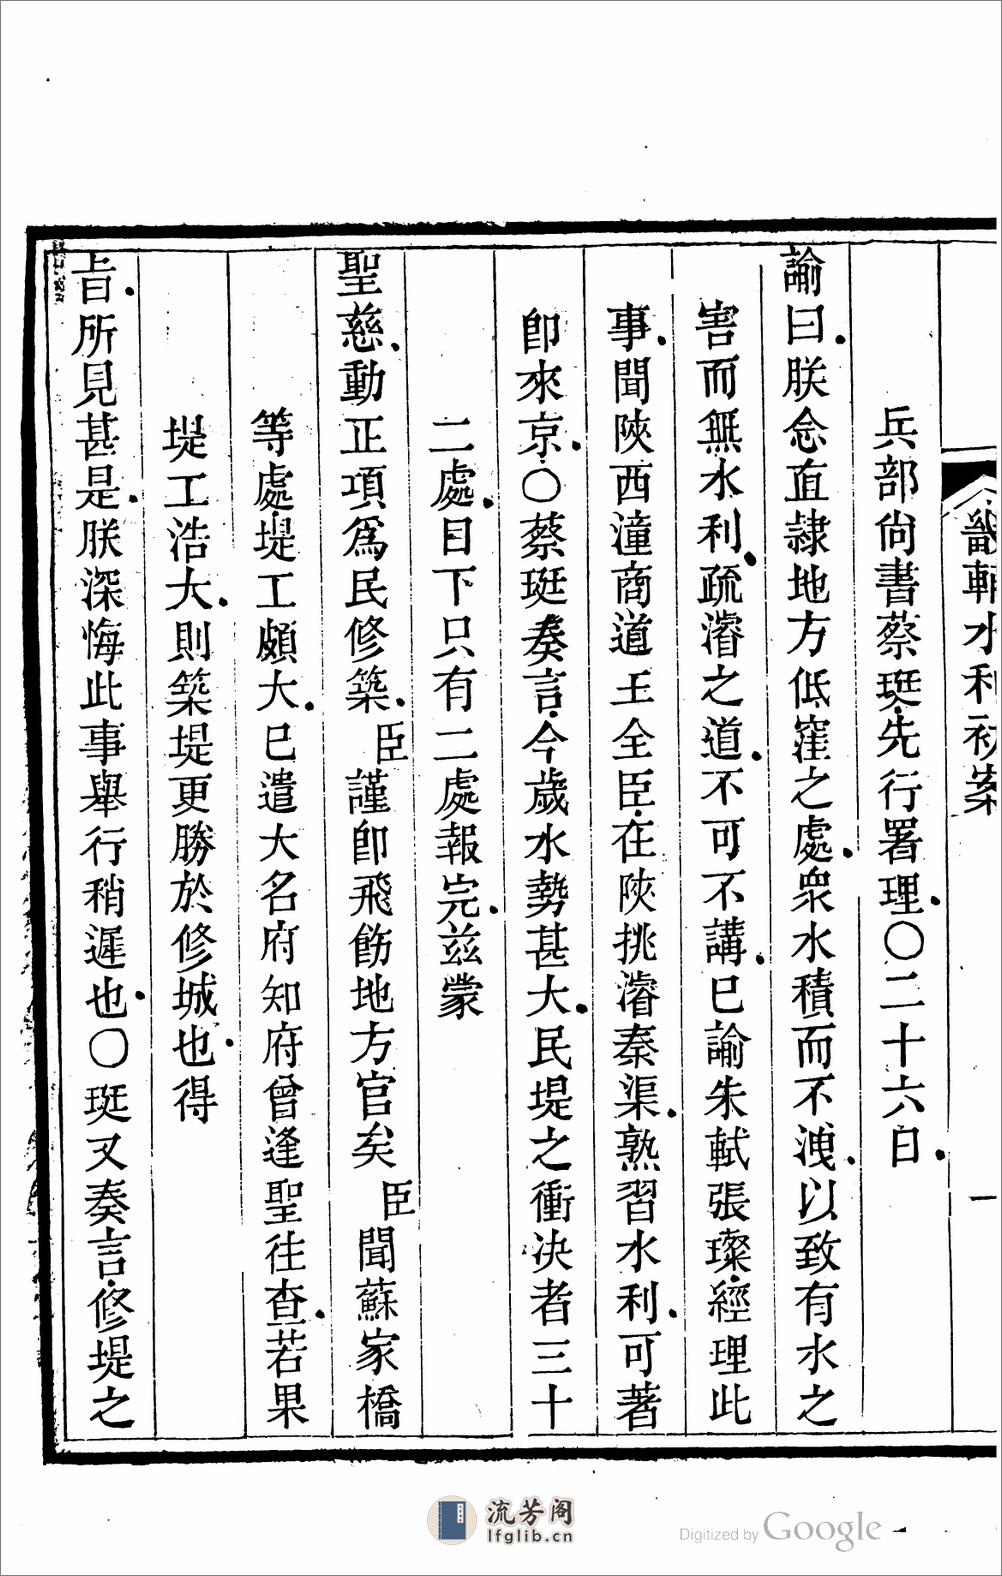 畿輔水利初案
一
兵部尙書蔡珽先行署理〇二十六日
諭曰朕念直隸地方低窪之處衆水積而不洩以致有水之
害而無水利疏濬之道不可不講已諭朱軾張璨經理此
事聞陝西潼商道王全臣在陝挑濬秦渠熟習水利可著
卽來京〇蔡珽奏言今歲水勢甚大民堤之衝决者三十
二處目下只有二處報完茲蒙
聖慈動正項爲民修築臣謹卽飛飭地方官矣臣聞蘇家橋
等處堤工頗大已遣大名府知府曾逢聖往查若果
堤工浩大則築堤更勝於修城也得
旨所見甚是朕深悔此事舉行稍遲也〇珽又奏言修堤之
流芳阁
lfglib.cn
Digitized by Google